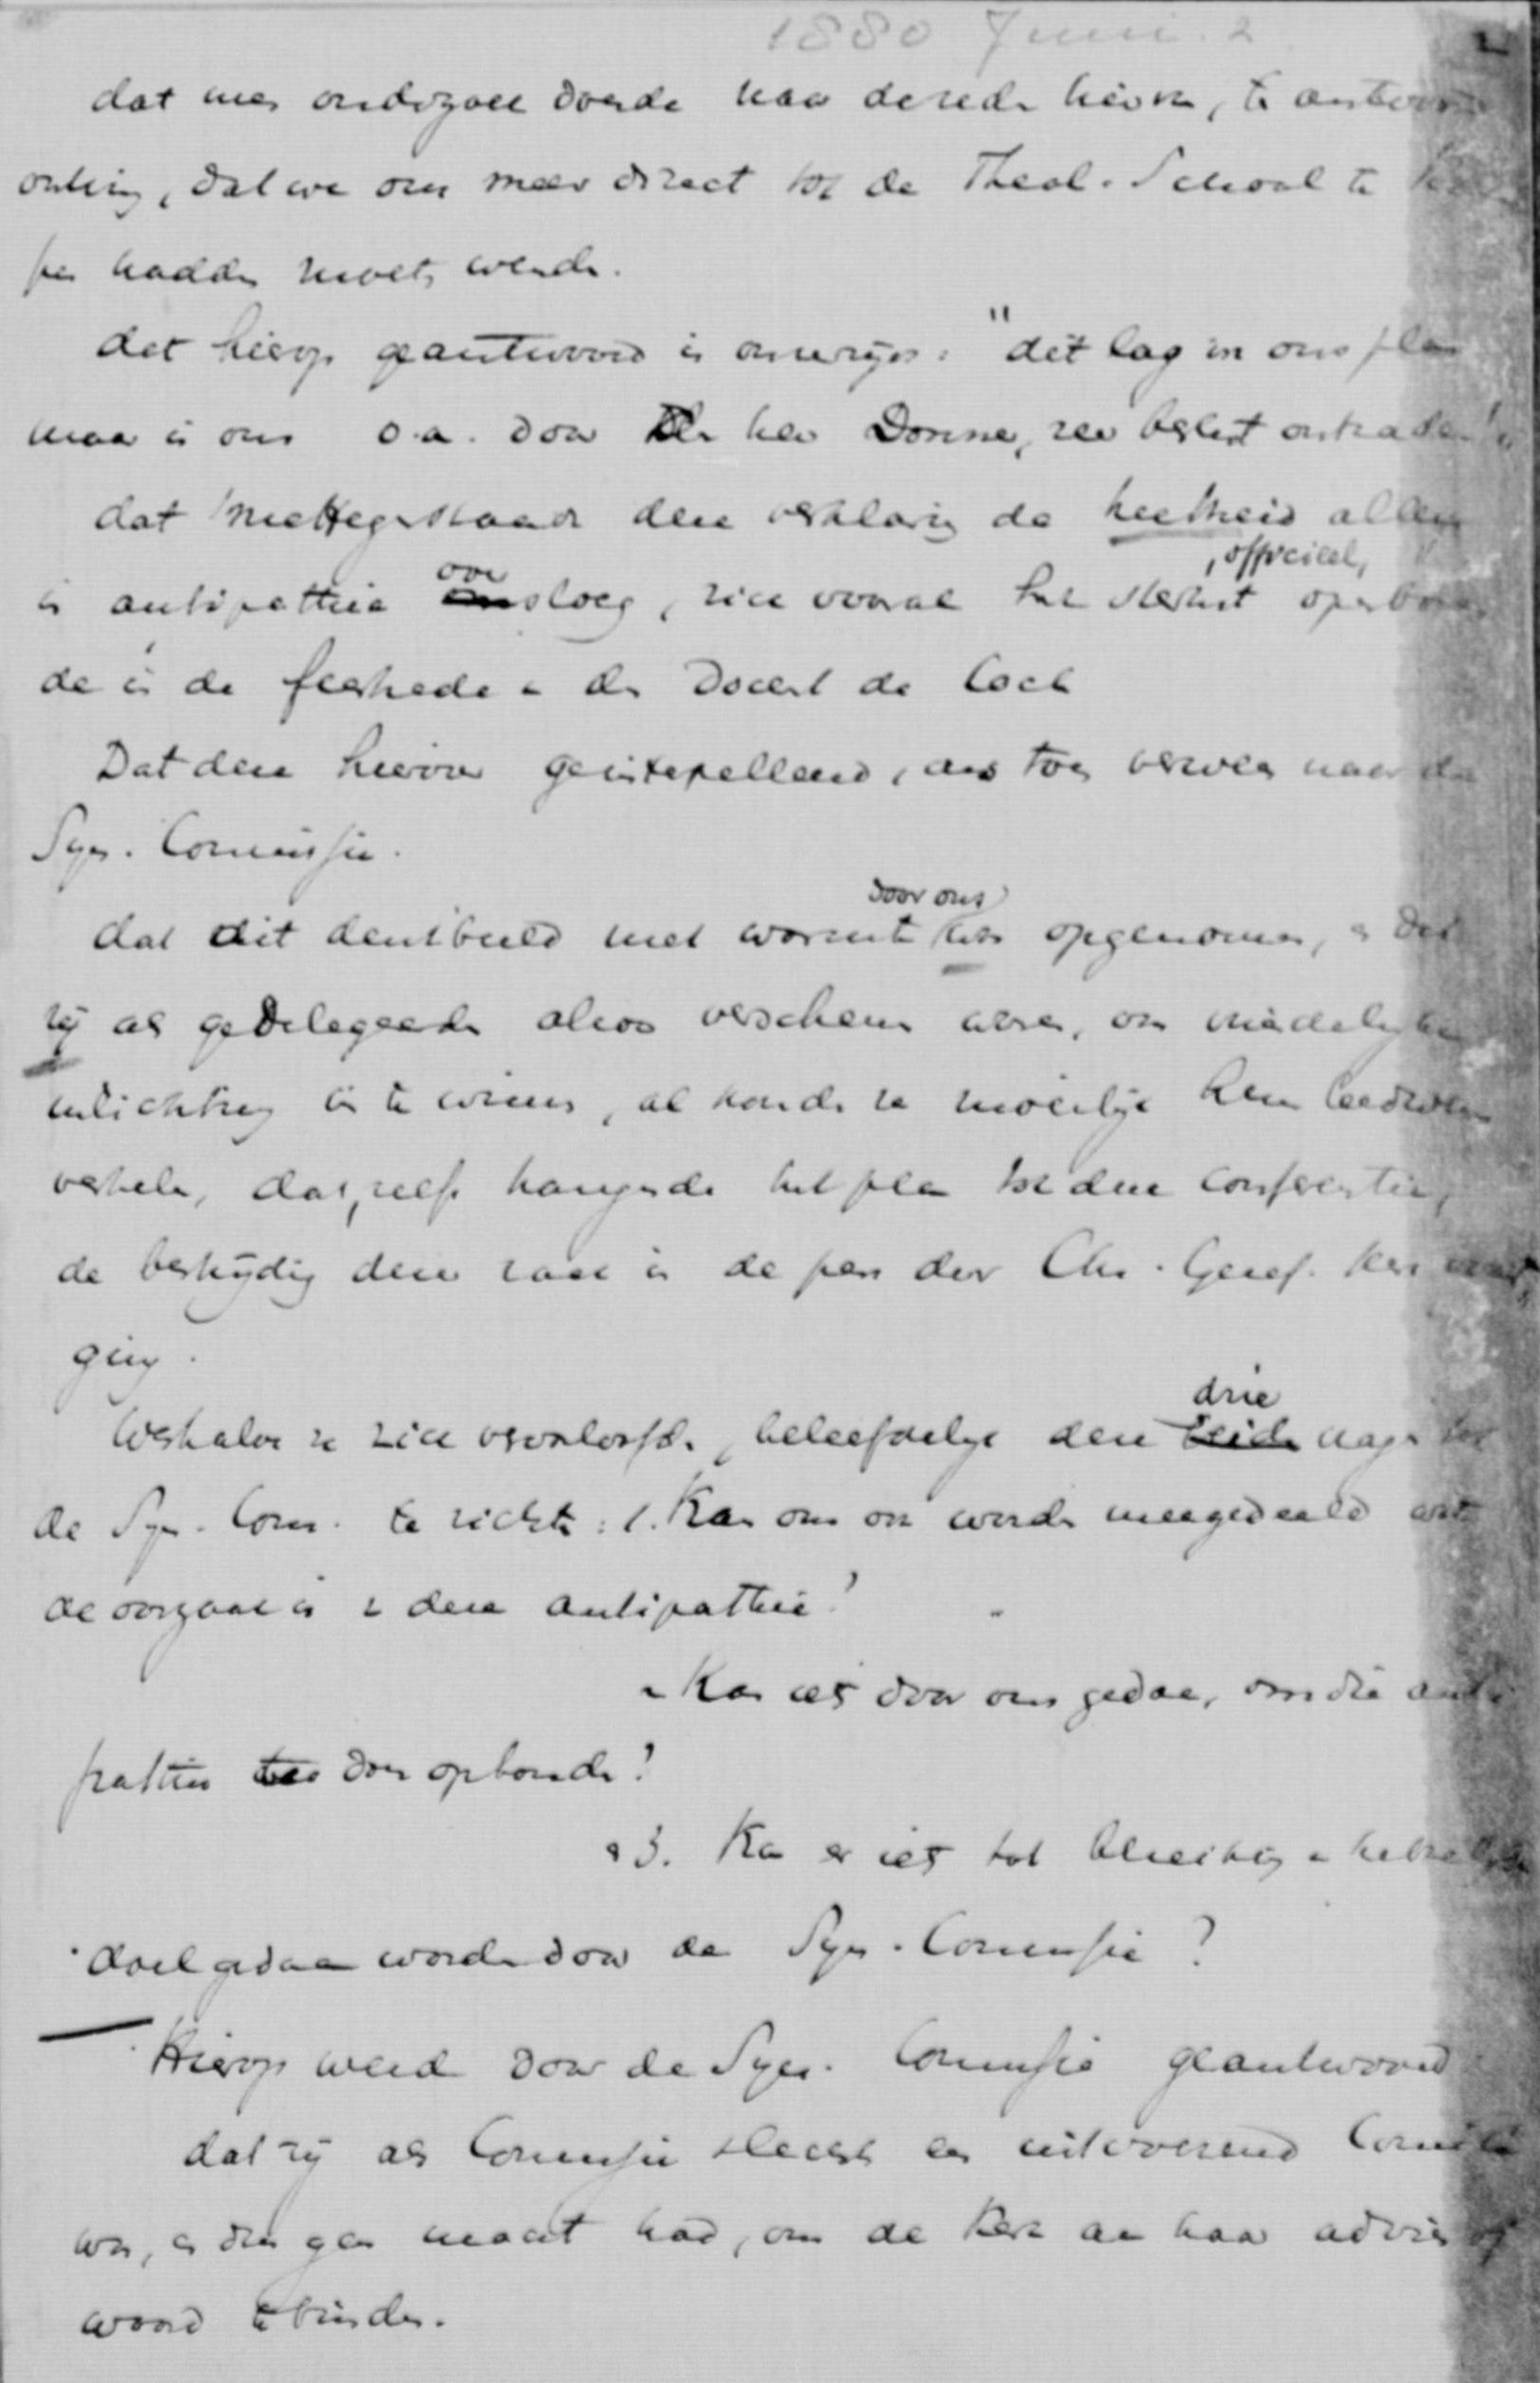 1880 Juni. 2
dat men onderzoek doende naar de reden hiervan, te
dat we ons meer direct tot de Theol. School te
pen hadden moeten wenden.
dat hierop geantwoord is onzerzijds: "dit lag in ons plan
maar is ons o.a. door Dr den Heer Donner, zeer beslist ontraden"
dat niettegenstaande deze verklaring de heelheid alleen
in antipathie oversloeg, zich vooral het sterkst, officieel, openbaren
de in de feestrede van den Docent de Cock
Dat deze hierover geïnterpelleerd, ons toen verwees naar de
Syn. Commissie.
dat dit denkbeeld met warmte door ons opgenomen, en dat
zij als gedelegeerden alsoo verschenen waren, om mondelinge
inlichting in te winnen, al konden ze moeilijk hun leedwezen
verhelen, dat, zelfs hangende het plan tot deze conferentie,
de bestrijding dezer zaak in de pers der Chr. Geref. Kerk
ging.
Weshalve ze zich veroorloofden, beleefdelijk deze drie vragen tot
de Syn. Com. te richten: 1. Kan ons ook worden meegedeeld wat
de oorzaak is van deze antipathie?
2 Kan iets door ons gedaan, om die anti
pathie te doen ophouden?
3. Kan er iets tot bereiking van hetzelfde
doel gedaan worden door de Syn. Commissie?
Hierop werd door de Syn. Commissie geantwoord
dat zij als Commissie slechts een uitvoerend Comité
was, en dus geen macht had, om de Kerk aan haar advies of
woord te binden.